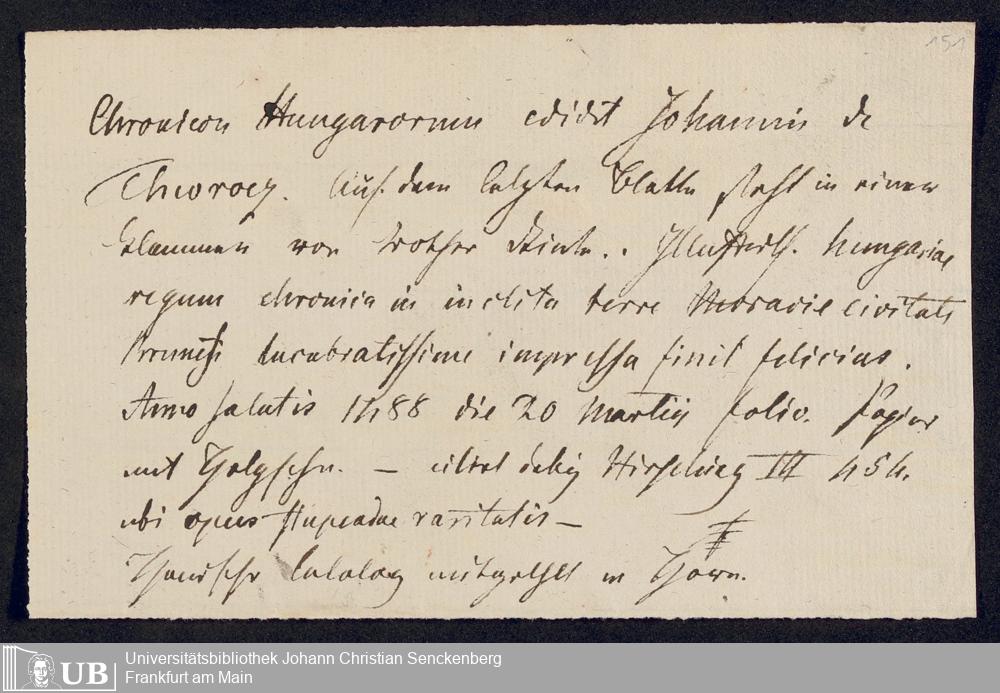 151
Chronicon Hungarorum edidit Johannis de
Thworocz. Auf dem letzten Blatte steht in einer
Klammer von rother Dinte. . Illustriss. hungariae
regum chronica in inclita terre Moravie civitate
Brunens. lucubratissime impressa finit felicius.
Anno salutis 1488 die 20 Martij folio. Papier
mit Holzschn. – citirt Hirsching III 454.
ubi opus stupendae raritatis –
Catalog mitgetheilt
UB
Universitätsbibliothek Johann Christian Senckenberg
Frankfurt am Main